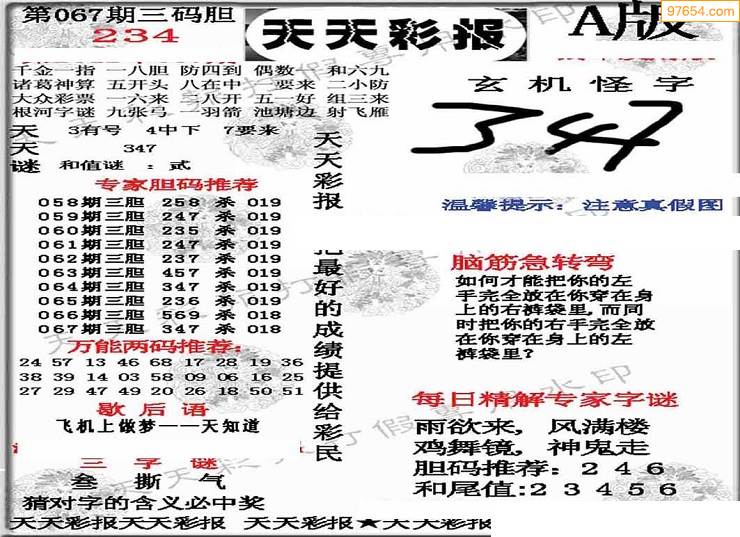 第067期三码胆
234
天天彩报
A版
97654.com
千金一指 一八胆 防四到 偶数 和六九
诸葛神算 五开头 八在中 要来 二小防
大众彩票 一六来 三八开 五一好 组三来
根河字谜 九张弓 一羽箭 池塘边 射飞雁
天 3有号 4中下 7要来
天 347
谜 和值谜 : 贰
专家胆码推荐
058期三胆 258 杀 019
059期三胆 247 杀 019
060期三胆 235 杀 019
061期三胆 247 杀 019
062期三胆 237 杀 019
063期三胆 457 杀 019
064期三胆 347 杀 019
065期三胆 236 杀 019
066期三胆 569 杀 018
067期三胆 347 杀 018
万能两码推荐:
24 57 13 46 68 17 28 19 36
38 39 14 03 58 09 06 16 25
27 29 47 49 20 26 18 50 51
歇后语
飞机上做梦——天知道
三字谜
叁 撕 气
猜对字的含义必中奖
天天彩报
把最好的成绩提供给彩民
玄机怪字
347
温馨提示: 注意真假图
脑筋急转弯
如何才能把你的左
手完全放在你穿在身
上的右裤袋里,而同
时把你的右手完全放
在你穿在身上的左
裤袋里?
每日精解专家字谜
雨欲来, 风满楼
鸡舞镜, 神鬼走
胆码推荐: 2 4 6
和尾值:2 3 4 5 6
天天彩报天天彩报 天天彩报★天天彩报